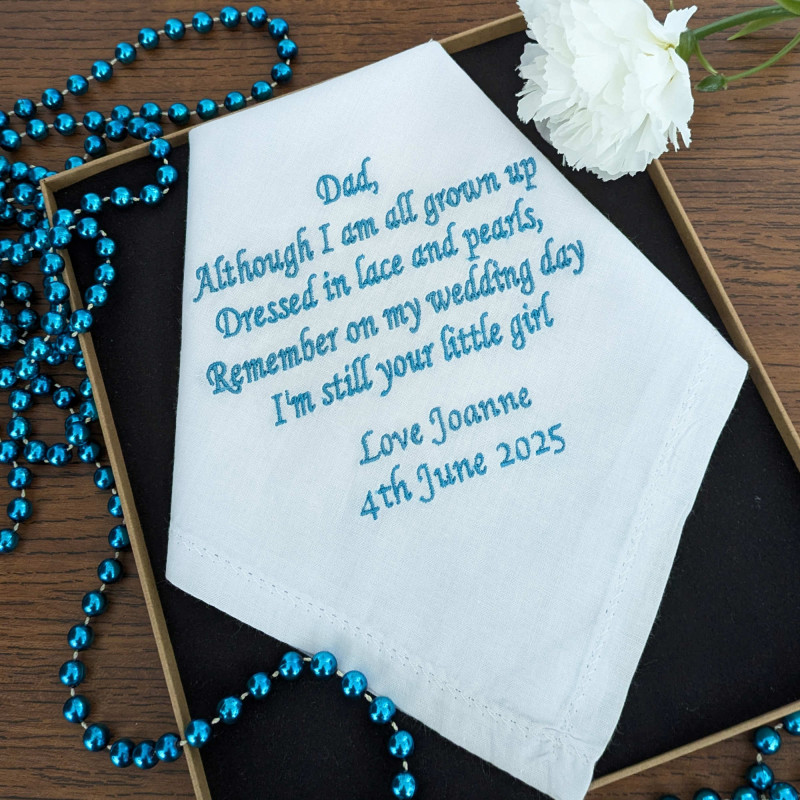 Dad,
Although I am all grown up
Dressed in lace and pearls,
Remember on my wedding day
I'm still your little girl
Love Joanne
4th June 2025